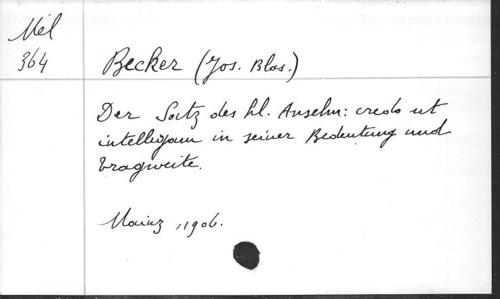 Mél
364
Becker (Jos. Blas.)
Der Satz des hl. Anselm: credo ut
intelligam in seiner Bedeutung und
Tragweite.
Mainz, 1906.